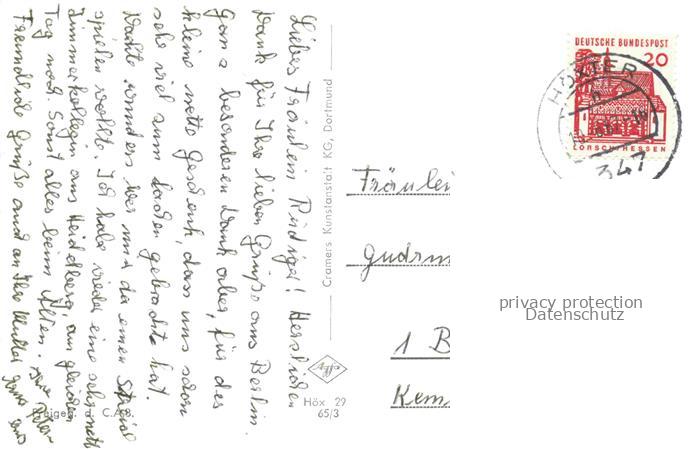 Liebes Fräulein Rüdiger! Herzlichen
Dank für Ihre lieben Grüße aus Berlin.
Ganz besonderen Dank aber, für das
kleine nette Gedenk, dass uns schon
sehr viel zum Lachen gebracht hat.
Dachte wer mir da einen Streich
spielen wollte. Ich habe wieder eine sehr nette
Zimmerkollegin aus Heidelberg, am gleichen
Tag noch. Sonst alles beim Alten.
Freundliche Grüße auch an Ihre Mutter
Eigen. d. C.A.S.
Cramers Kunstanstalt KG, Dortmund
Höx 29
65/3
DEUTSCHE BUNDESPOST
20
LORSCH/HESSEN
HÖXTER
347
Fräulei
Gudrun
1 B
Kem
privacy protection
Datenschutz